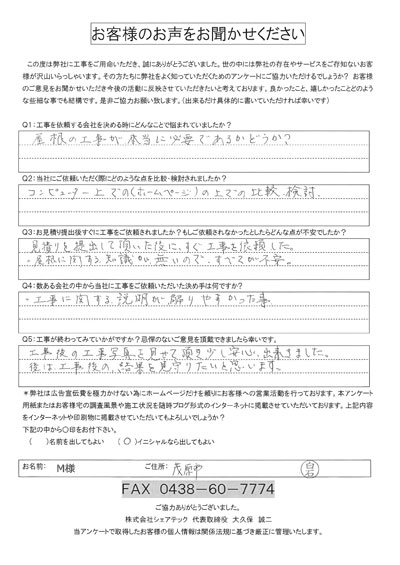 お客様のお声をお聞かせください
この度は弊社に工事をご用命いただき、誠にありがとうございました。世の中には弊社の存在やサービスをご存知ないお客
様が沢山いらっしゃいます。その方たちに弊社をよく知っていただくためのアンケートにご協力いただけるでしょうか? お客様
のご意見をお聞かせいただき今後の活動に反映させていただきたいと考えております。良かったこと、嬉しかったことどのよう
な些細な事でも結構です。是非ご協力お願い致します。(出来るだけ具体的に書いていただければ幸いです)
Q1:工事を依頼する会社を決める時にどんなことで悩まれていましたか?
屋根の工事が本当に必要であるかどうか?
Q2:当社にご依頼いただく際にどのような点を比較・検討されましたか?
コンピューター上での(ホームページ)の上での比較、検討.
Q3:お見積り提出後すぐに工事をご依頼されましたか?もしご依頼されなかったとしたらどんな点が不安でしたか?
見積りを提出して頂いた後に、すぐ工事を依頼した。
・屋根に関する知識が無いので、すべてが不安。
Q4:数ある会社の中から当社に工事をご依頼いただいた決め手は何ですか?
・工事に関する説明が解りやすかった事。
Q5:工事が終わってみていかがですか?忌憚のないご意見を頂戴できましたら幸いです。
工事後の工事写真を見せて頂き少し安心出来ました。
後は工事後の、結果を見守りたいと思います。
*弊社は広告宣伝費を極力かけない為にホームページだけを頼りにお客様への営業活動を行っております。本アンケート
用紙またはお客様宅の調査風景や施工状況を随時ブログ形式のインターネットに掲載させていただいております。上記内容
をインターネットや印刷物に掲載させていただいてもよろしいでしょうか?
下記の中から〇印をお付下さい。
( )名前を出してもよい (〇)イニシャルなら出してもよい
お名前: M様 ご住所: 茂原市
FAX 0438-60-7774
ご協力ありがとうございました。
株式会社シェアテック 代表取締役 大久保 誠二
当アンケートで取得したお客様の個人情報は関係法規に基づき厳正に管理いたします。